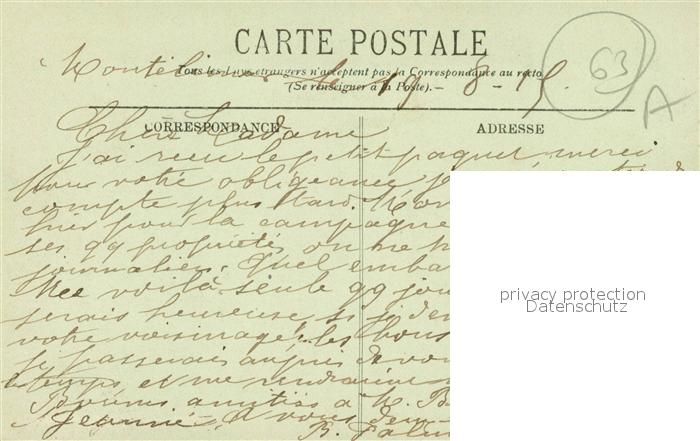 CARTE POSTALE
Tous les Pays étrangers n'acceptent pas la Correspondance au recto
(Se renseigner à la Poste).—
Montélimar le 19-8-15
63
A
CORRESPONDANCE
ADRESSE
Chère Madame
J'ai reçu le petit paquet, merci
pour votre obligeance, je
compte plus tard.
hier pour la campagne
ses qq propriétés, on ne
journalier. Quel emba
Mee voilà seule qq jou
serais heureuse si je
votre voisinage. les
je passerais auprès de vou
le temps et me rendraient
Bonnes amitiés à M. B
Jeanne, à vous
B.
privacy protection
Datenschutz